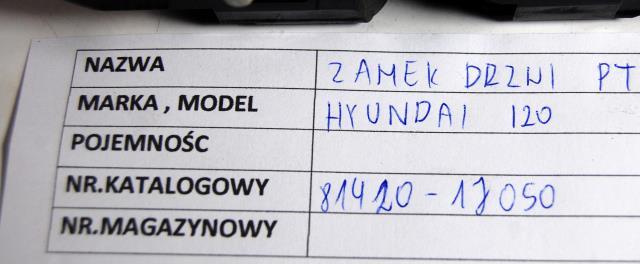 NAZWA ZAMEK DRZNI PT
MARKA , MODEL HYUNDAI I20
POJEMNOŚC
NR.KATALOGOWY 81420-1J050
NR.MAGAZYNOWY